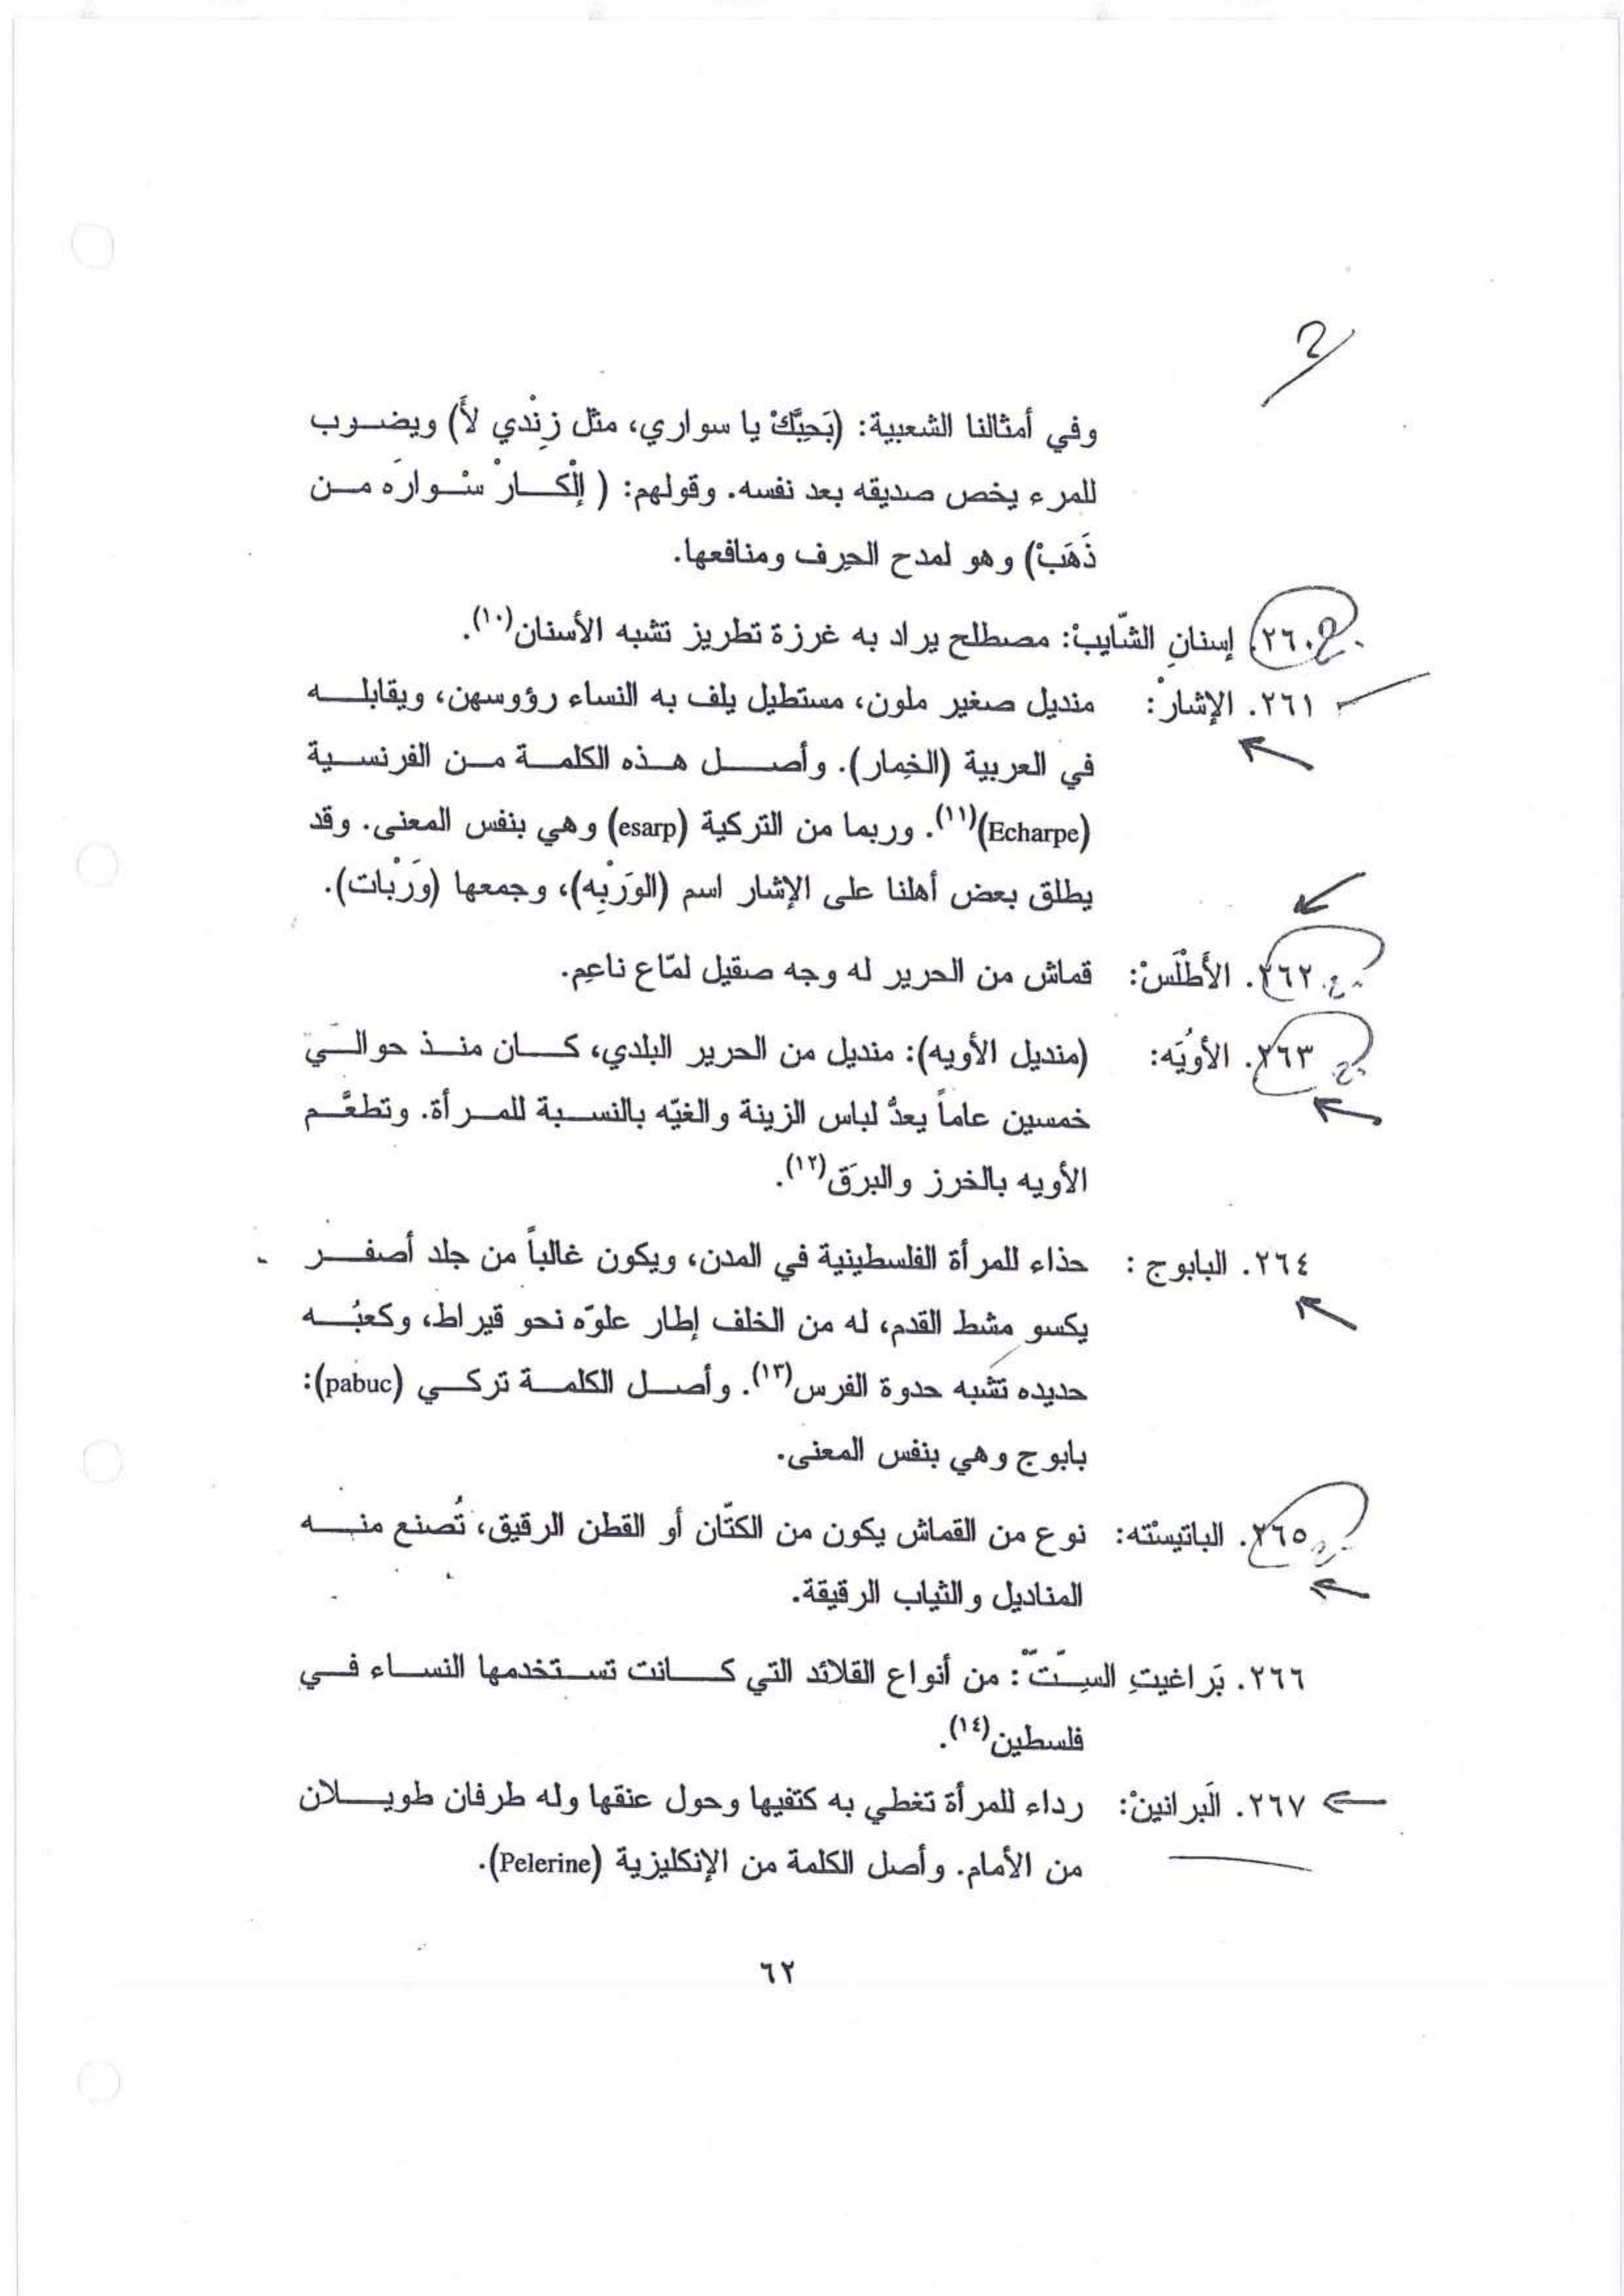 وفي أمثالنا الشعبية: (بَحِبَّكْ يا سواري، مثل زِنْدي لأَ) ويضرب
للمرء يخص صديقه بعد نفسه. وقولهم: ( إلْكارْ سْوارَه من
ذَهَبْ) وهو لمدح الحِرف ومنافعها.
٢٦٠. إسنانِ الشّايبْ: مصطلح يراد به غرزة تطريز تشبه الأسنان(١٠).
٢٦١. الإشارْ: منديل صغير ملون، مستطيل يلف به النساء رؤوسهن، ويقابله
في العربية (الخِمار). وأصل هذه الكلمة من الفرنسية
(Echarpe)(١١). وربما من التركية (esarp) وهي بنفس المعنى. وقد
يطلق بعض أهلنا على الإشار اسم (الوَرْبِه)، وجمعها (وَرْبات).
٢٦٢. الأَطْلَسْ: قماش من الحرير له وجه صقيل لمّاع ناعِم.
٢٦٣. الأويَه: (منديل الأويه): منديل من الحرير البلدي، كان منذ حوالي
خمسين عاماً يعدُّ لباس الزينة والغيّه بالنسبة للمرأة. وتطعَّم
الأويه بالخرز والبرَق(١٢).
٢٦٤. البابوج : حذاء للمرأة الفلسطينية في المدن، ويكون غالباً من جلد أصفر
يكسو مشط القدم، له من الخلف إطار علوّه نحو قيراط، وكعبُه
حديده تشبه حدوة الفرس(١٣). وأصل الكلمة تركي (pabuc):
بابوج وهي بنفس المعنى.
٢٦٥. الباتيسْته: نوع من القماش يكون من الكتّان أو القطن الرقيق، تُصنع منه
المناديل والثياب الرقيقة.
٢٦٦. بَراغيتِ السِتّ: من أنواع القلائد التي كانت تستخدمها النساء في
فلسطين(١٤).
٢٦٧. البَرانينْ: رداء للمرأة تغطي به كتفيها وحول عنقها وله طرفان طويلان
من الأمام. وأصل الكلمة من الإنكليزية (Pelerine).
٦٢